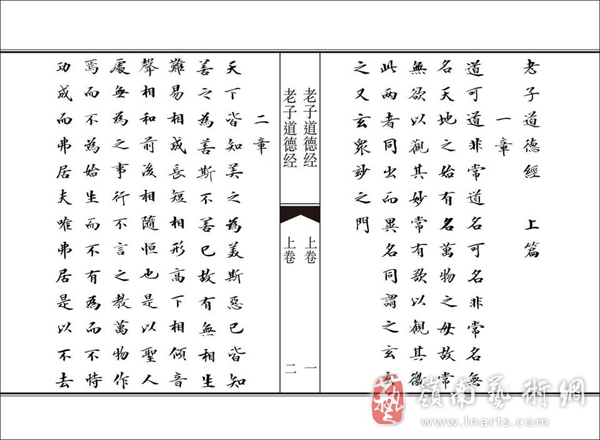 老子道德經 上篇
一章
道可道非常道名可名非常名無
名天地之始有名萬物之母故常
無欲以觀其妙常有欲以觀其徼
此兩者同出而異名同謂之玄玄
之又玄眾妙之門
老子道德经 上卷 一
老子道德经 上卷 二
二章
天下皆知美之為美斯惡已皆知
善之為善斯不善已故有無相生
難易相成長短相形高下相傾音
聲相和前後相隨恒也是以聖人
處無為之事行不言之教萬物作
焉而不為始生而不有為而不恃
功成而弗居夫唯弗居是以不去
藝
嶺南藝術網
www.lnarts.com